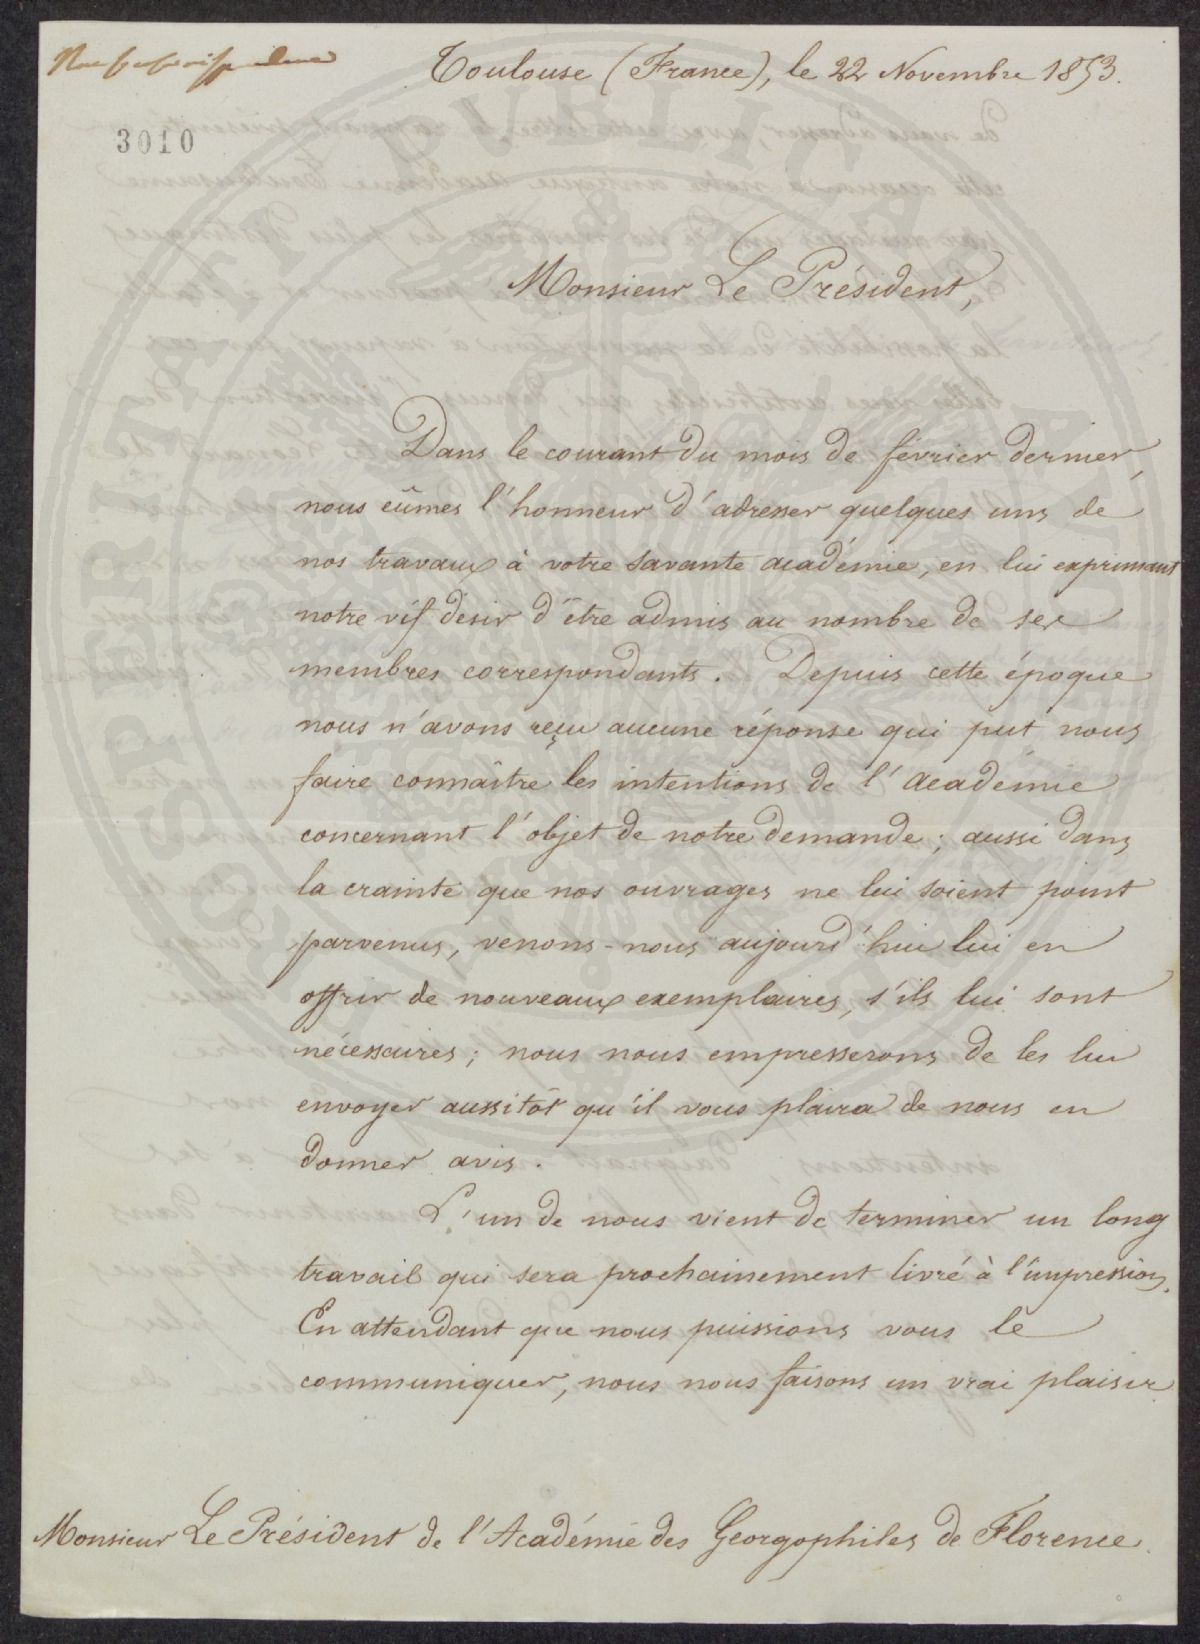 Toulouse (France), le 22 Novembre 1853.
3010
Monsieur Le Président,
Dans le courant du mois de février dernier,
nous eûmes l'honneur d'adresser quelques uns de
nos travaux à votre savante académie, en lui exprimant
notre vif désir d'être admis au nombre de ses
membres correspondants. Depuis cette époque
nous n'avons reçu aucune réponse qui put nous
faire connaître les intentions de l'Académie
concernant l'objet de notre demande ; aussi dans
la crainte que nos ouvrages ne lui soient point
parvenus, venons-nous aujourd'hui lui en
offrir de nouveaux exemplaires, s'ils lui sont
nécessaires ; nous nous empresserons de les lui
envoyer aussitôt qu'il vous plaira de nous en
donner avis.
L'un de nous vient de terminer un long
travail qui sera prochainement livré à l'impression.
En attendant que nous puissions vous le
communiquer, nous nous faisons un vrai plaisir
Monsieur Le Président de l'Académie des Georgophiles de Florence.
PROSPERITATI PUBLICAE AUGENDAE